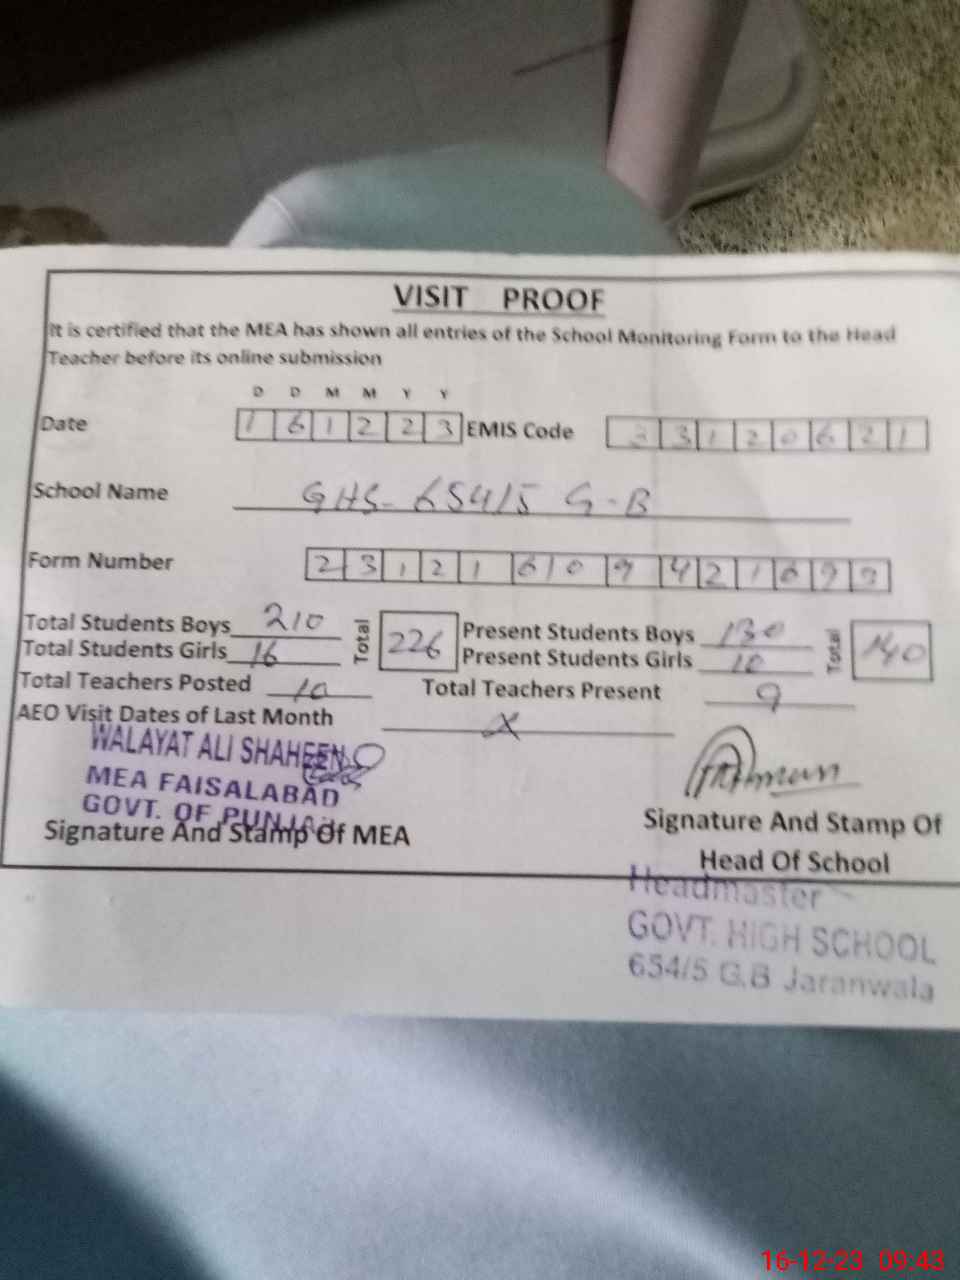 VISIT PROOF
It is certified that the MEA has shown all entries of the School Monitoring Form to the Head
Teacher before its online submission
D D M M Y Y
Date 1 6 1 2 2 3 EMIS Code 3 3 1 2 0 6 2 1
School Name GHS- 654/5 G-B
Form Number 2 3 1 2 1 6 0 9 4 2 1 6 9 3
Total Students Boys 210 Total 226 Present Students Boys 130 Total 140
Total Students Girls 16 Present Students Girls 10
Total Teachers Posted 10 Total Teachers Present 9
AEO Visit Dates of Last Month X
WALAYAT ALI SHAHEEN
MEA FAISALABAD
GOVT. OF PUNJAB
Signature And Stamp Of MEA
Signature And Stamp Of
Head Of School
Headmaster
GOVT. HIGH SCHOOL
654/5 G.B Jaranwala
16-12-23 09:43